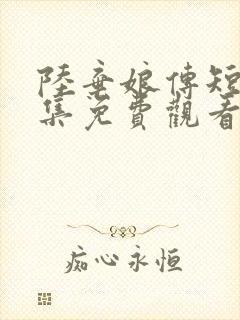 陸棄娘傳短
集免費觀看
痴心永恒